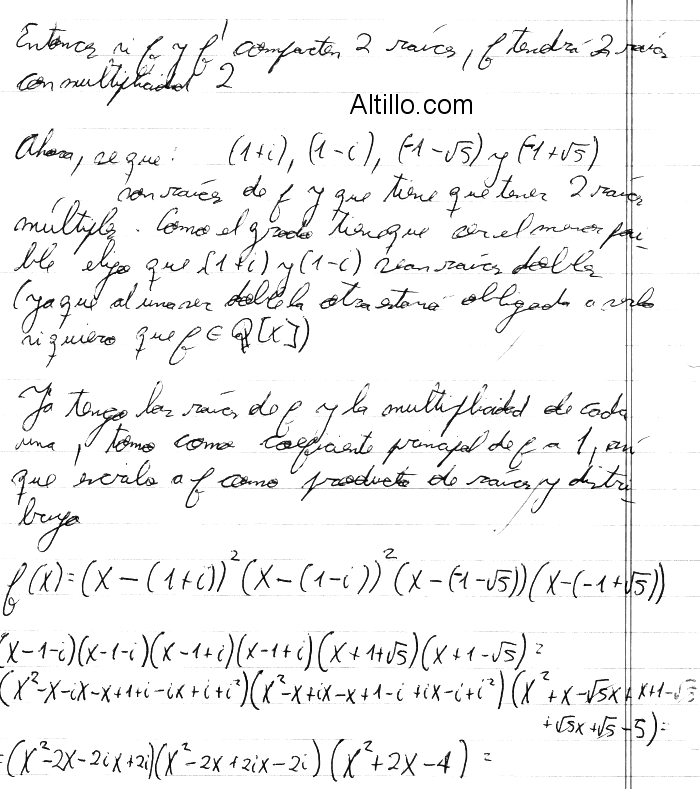 Entonces si f y f' comparten 2 raíces, f tendrá 2 raíces
con multiplicidad 2
Altillo.com
Ahora, se que: (1+i), (1-i), (-1-√5) y (-1+√5)
son raíces de f y que tiene que tener 2 raíces
múltiples. Como el grado tiene que ser el menor posi-
ble elijo que (1+i) y (1-i) sean raíces dobles
(ya que al una ser doble la otra estará obligada a serlo
si quiero que f ∈ Q[X])
Ya tengo las raíces de f y la multiplicidad de cada
una, tomo como coeficiente principal de f a 1, así
que escribo a f como producto de raíces y distri-
buyo
f(X)=(X-(1+i))²(X-(1-i))²(X-(-1-√5))(X-(-1+√5))
(X-1-i)(X-1-i)(X-1+i)(X-1+i)(X+1+√5)(X+1-√5)=
(X²-X-iX-X+1+i-iX+i+i²)(X²-X+iX-X+1-i+iX-i+i²)(X²+X-√5X+X+1-√5
+√5X+√5-5)=
=(X²-2X-2iX+2i)(X²-2X+2iX-2i)(X²+2X-4)=